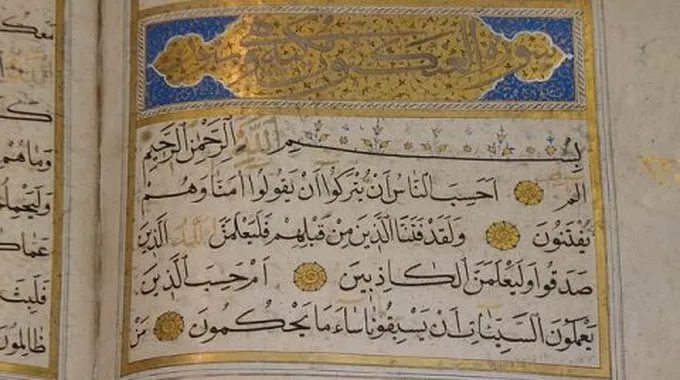 سورة العنكبوت مكية وهي
بِسْمِ اللَّهِ الرَّحْمٰنِ الرَّحِيمِ
الم اَحَسِبَ النَّاسُ اَنْ يُتْرَكُوا اَنْ يَقُولُوا اٰمَنَّا وَهُمْ
يُفْتَنُونَ وَلَقَدْ فَتَنَّا الَّذِينَ مِنْ قَبْلِهِمْ فَلَيَعْلَمَنَّ اللَّهُ الَّذِينَ
صَدَقُوا وَلَيَعْلَمَنَّ الْكَاذِبِينَ اَمْ حَسِبَ الَّذِينَ
يَعْمَلُونَ السَّيِّئَاتِ اَنْ يَسْبِقُونَا سَاءَ مَا يَحْكُمُونَ مَنْ
مَعَكُمْ
وَمَاهُمْ
عَمَّا
فَلَبِثَ
ظَالِمُونَ